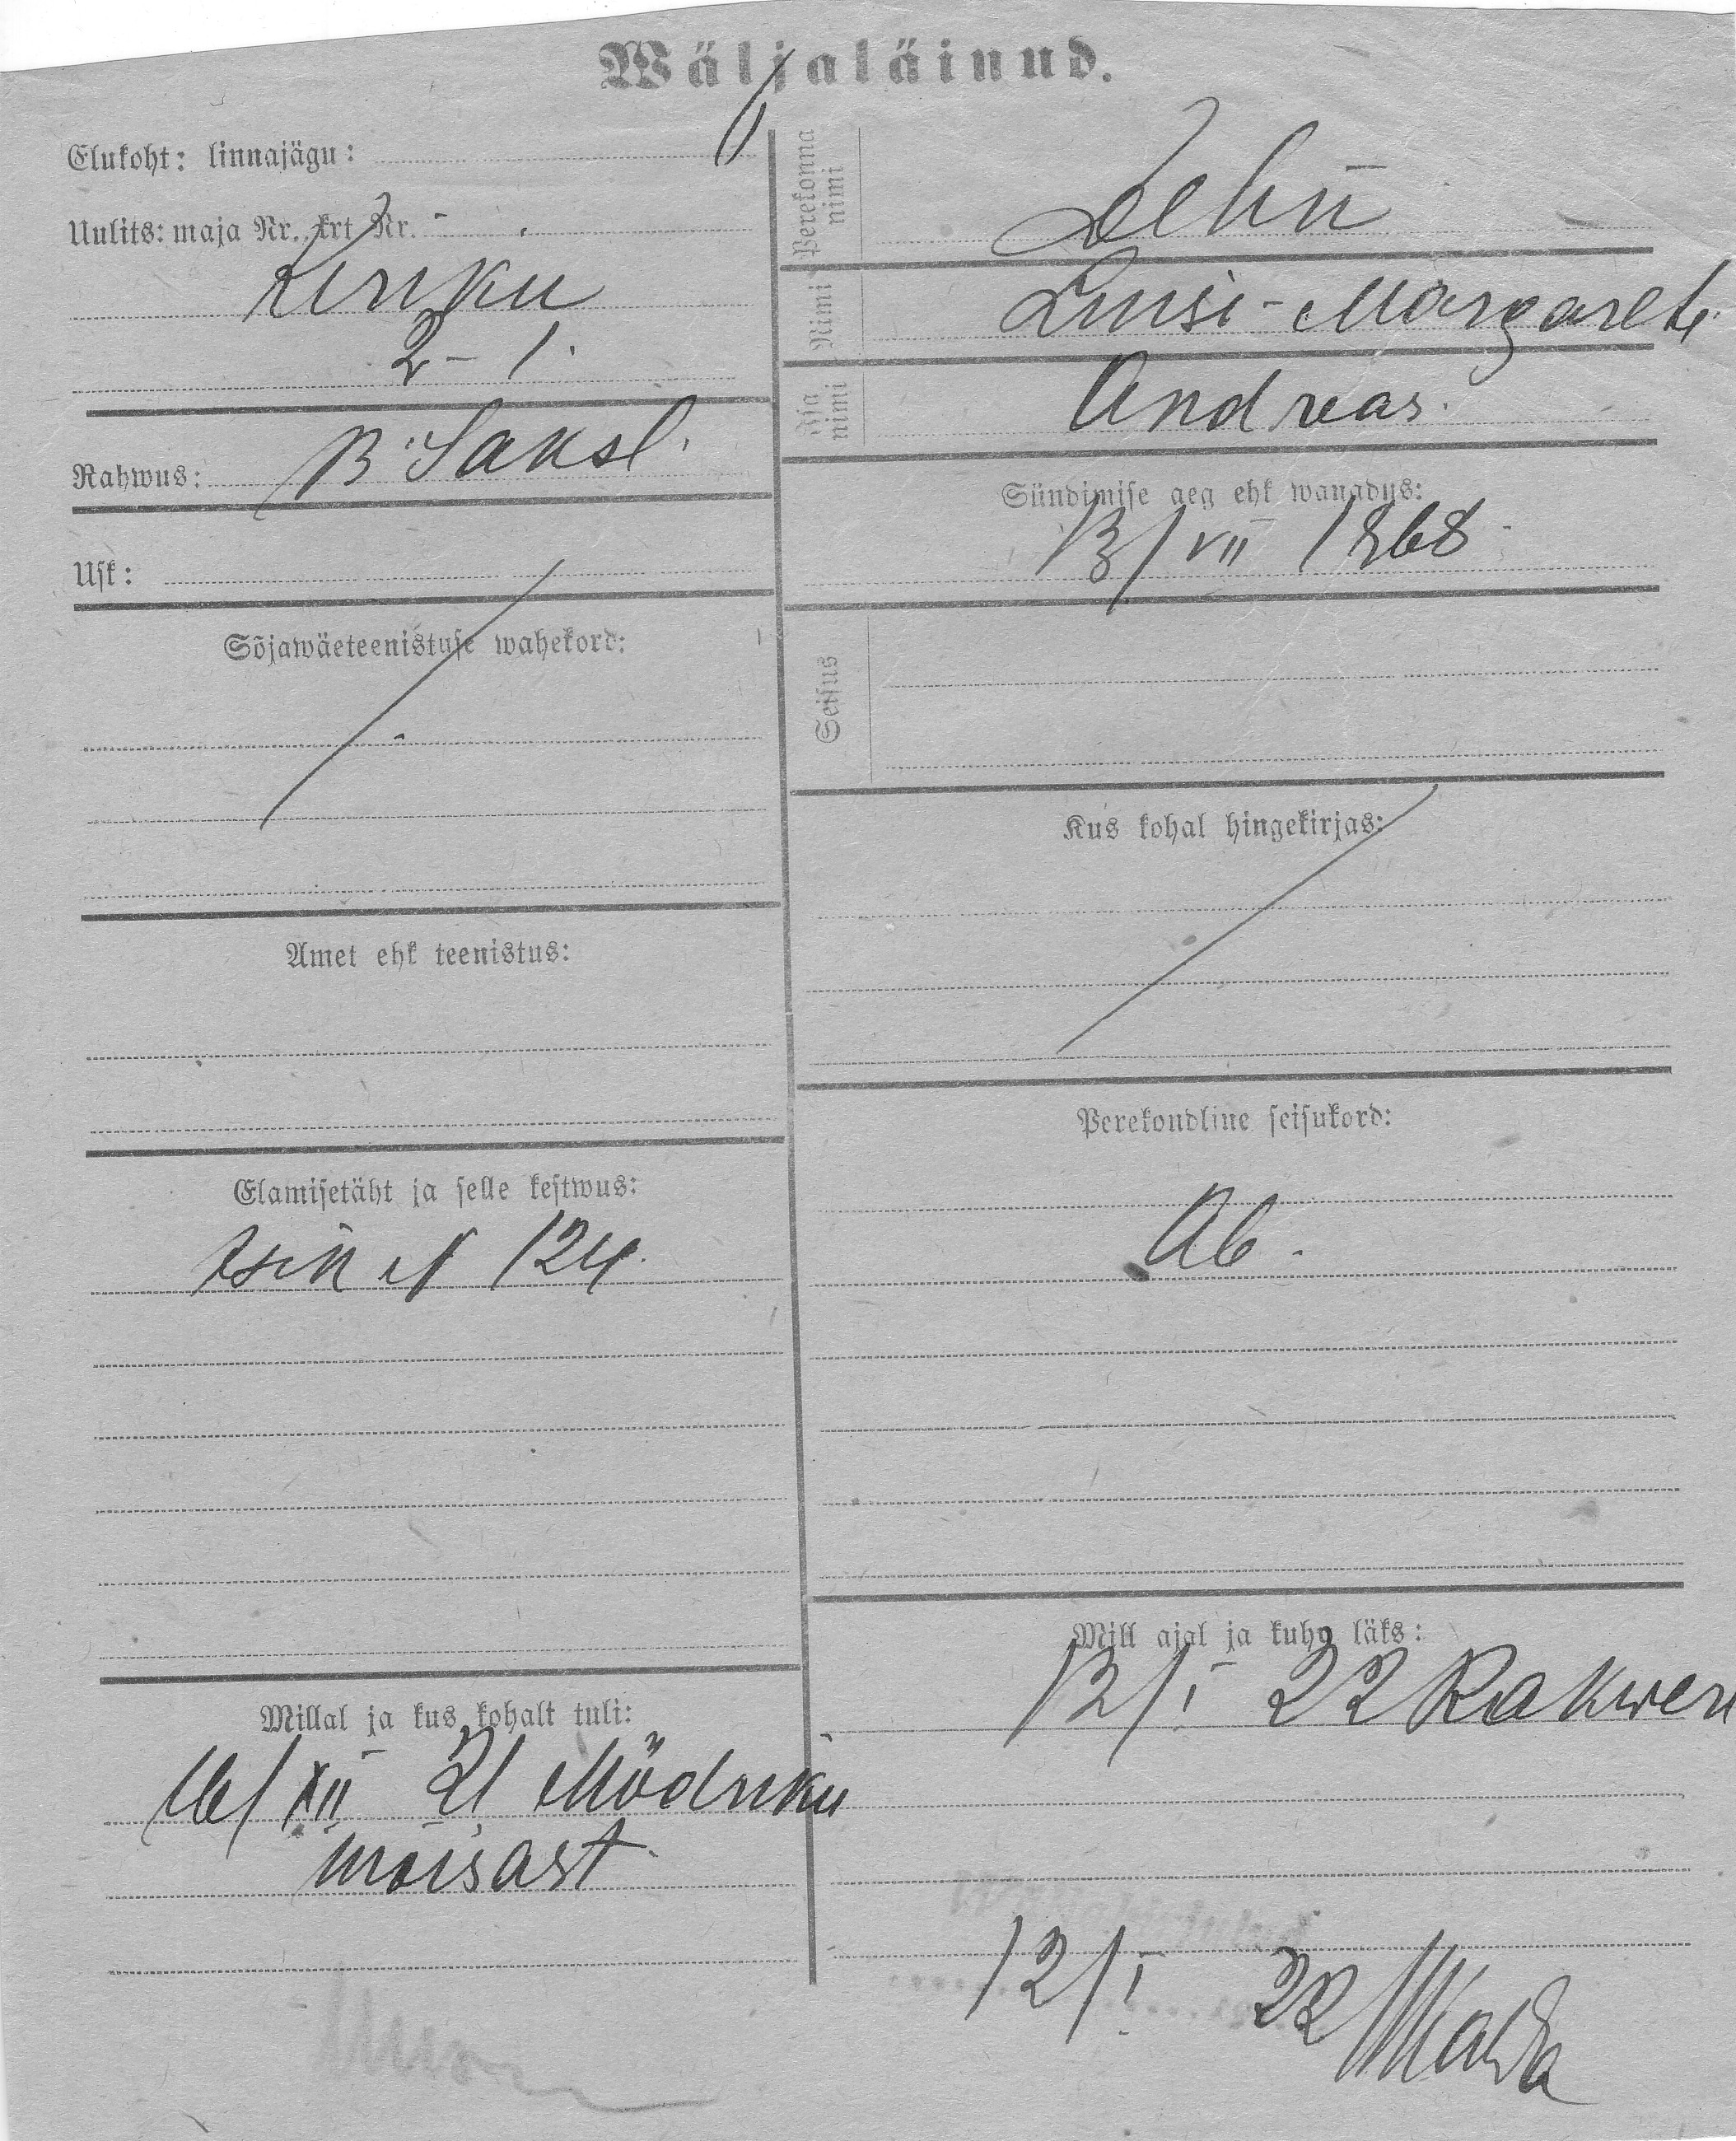 Wäljaläinud.
Elukoht: linnajägu:
Uulits: maja Nr. krt Nr.
Kiriku
2 - 1.
Rahwus: B. Saksl.
Usk:
Sõjawäeteenistuse wahekord:
Amet ehk teenistus:
Elamisetäht ja selle kestwus:
N 124.
Millal ja kus kohalt tuli:
16/XII 21 Mõdriku
mõisast
Perekonna nimi
Nimi Luisi-Margarete
Isa nimi Andreas.
Sündimise aeg ehk wanadus:
13/VII 1868
Seisus
Kus kohal hingekirjas:
Perekondline seisukord:
Ab.
Mill ajal ja kuhu läks:
12/I 22 Rakwere
12/I 22